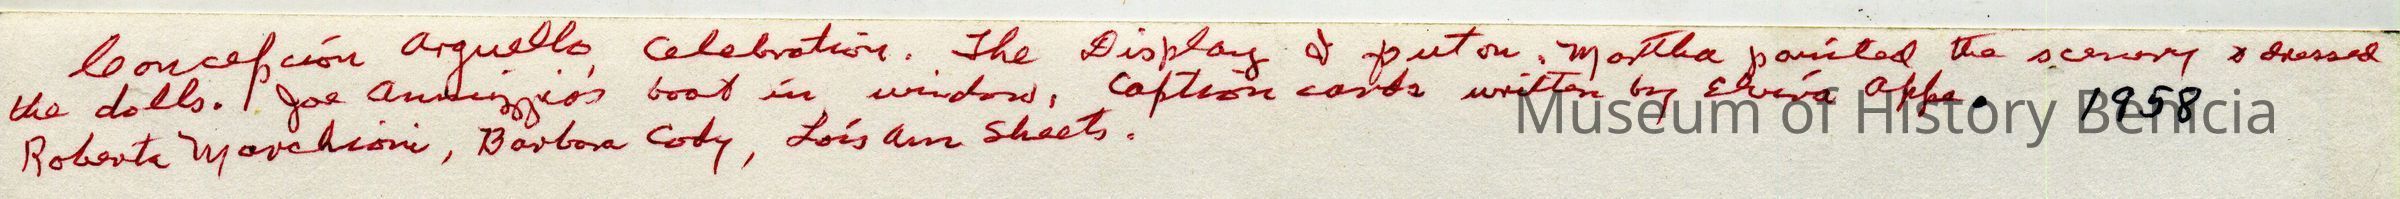 Concepción Arguello Celebration. The Display I put on. Martha painted the scenery & dressed
the dolls. Joe Annizzio's boat in window. Caption cards written by Elvira Appe. 1958
Roberta Marchioni, Barbara Cody, Lois Ann Sheets.
Museum of History Benicia